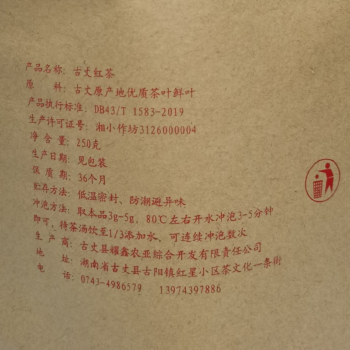 产品名称: 古丈红茶
原　　料: 古丈原产地优质茶叶鲜叶
产品执行标准: DB43/T 1583-2019
生产许可证号: 湘小作坊3126000004
净 含 量: 250克
生产日期: 见包装
保 质 期: 36个月
贮存方法: 低温密封、防潮避异味
冲泡方法: 取本品3g-5g, 80℃左右开水冲泡3-5分钟
即可, 待茶汤饮至1/3添加水, 可连续冲泡数次
生 产 商: 古丈县耀鑫农业综合开发有限责任公司
地　　址: 湖南省古丈县古阳镇红星小区茶文化一条街
电　　话: 0743-4986579　13974397886